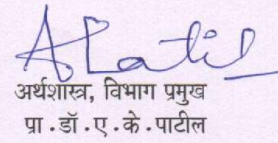 APatil
अर्थशास्त्र, विभाग प्रमुख
प्रा.डॉ.ए.के.पाटील